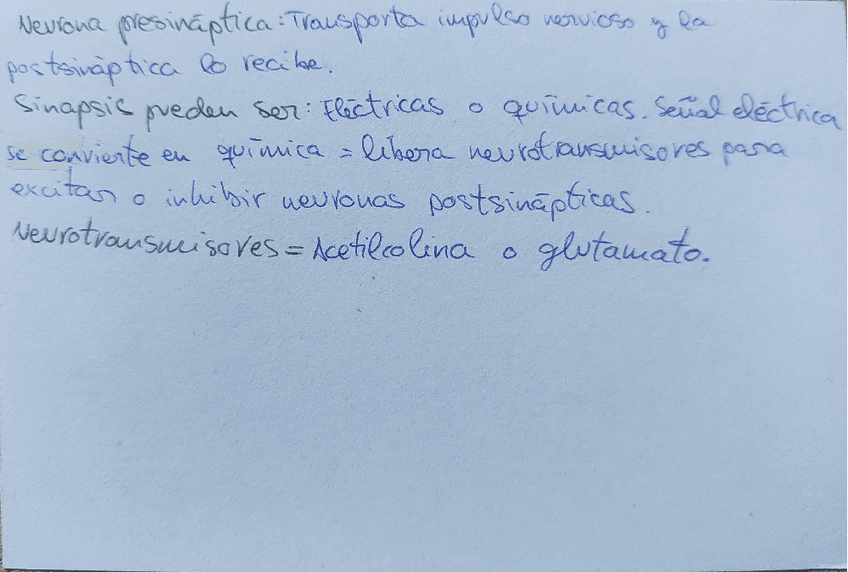 Neurona presináptica: Transporta impulso nervioso y la
postsináptica lo recibe.
Sinapsis pueden ser: Eléctricas o químicas. Señal eléctrica
se convierte en química = libera neurotransmisores para
excitar o inhibir neuronas postsinápticas.
Neurotransmisores = Acetilcolina o glutamato.